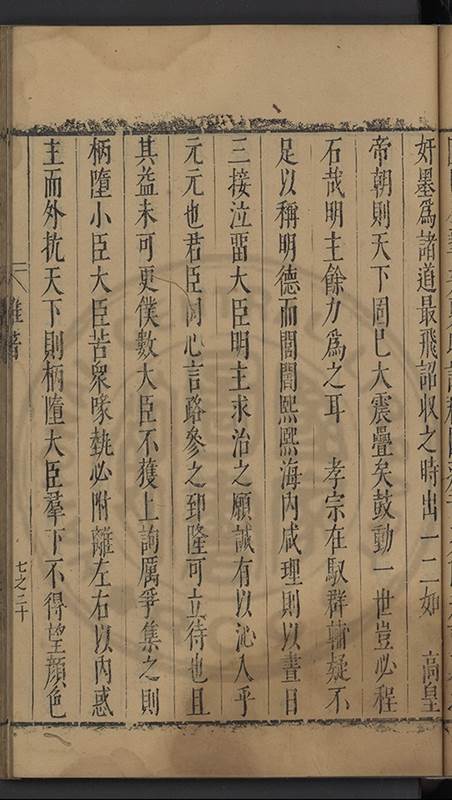 奸墨爲諸道最飛詔收之時出一二如　高皇
帝朝則天下固已大震疊矣鼓動一世豈必程
石哉明主餘力爲之耳　孝宗在馭群輔疑不
足以稱明德而闓闓熙熙海内咸理則以晝日
三接泣畱大臣明主求治之願誠有以沁入乎
元元也君臣同心言路參之郅隆可立待也且
其益未可更僕數大臣不獲上詢厲爭集之則
柄墮小臣大臣苦衆喙埶必附離左右以内惑
主而外抗天下則柄墮大臣羣下不得望顔色
雜著
七之二十